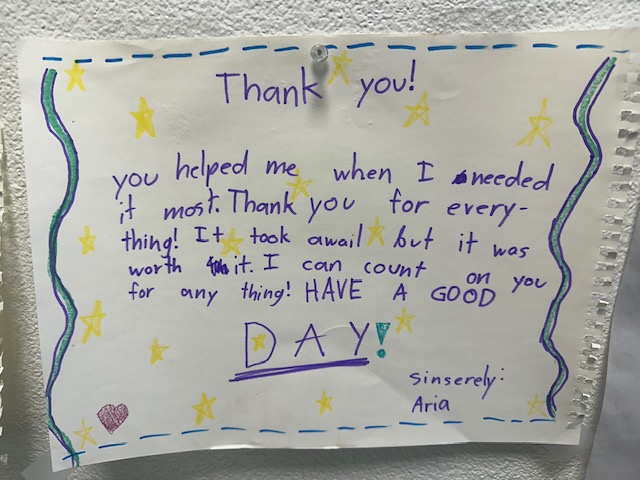 Thank you!
you helped me when I needed
it most. Thank you for every-
thing! It took awail but it was
worth it. I can count on you
for any thing! HAVE A GOOD
DAY!
sinserely:
Aria